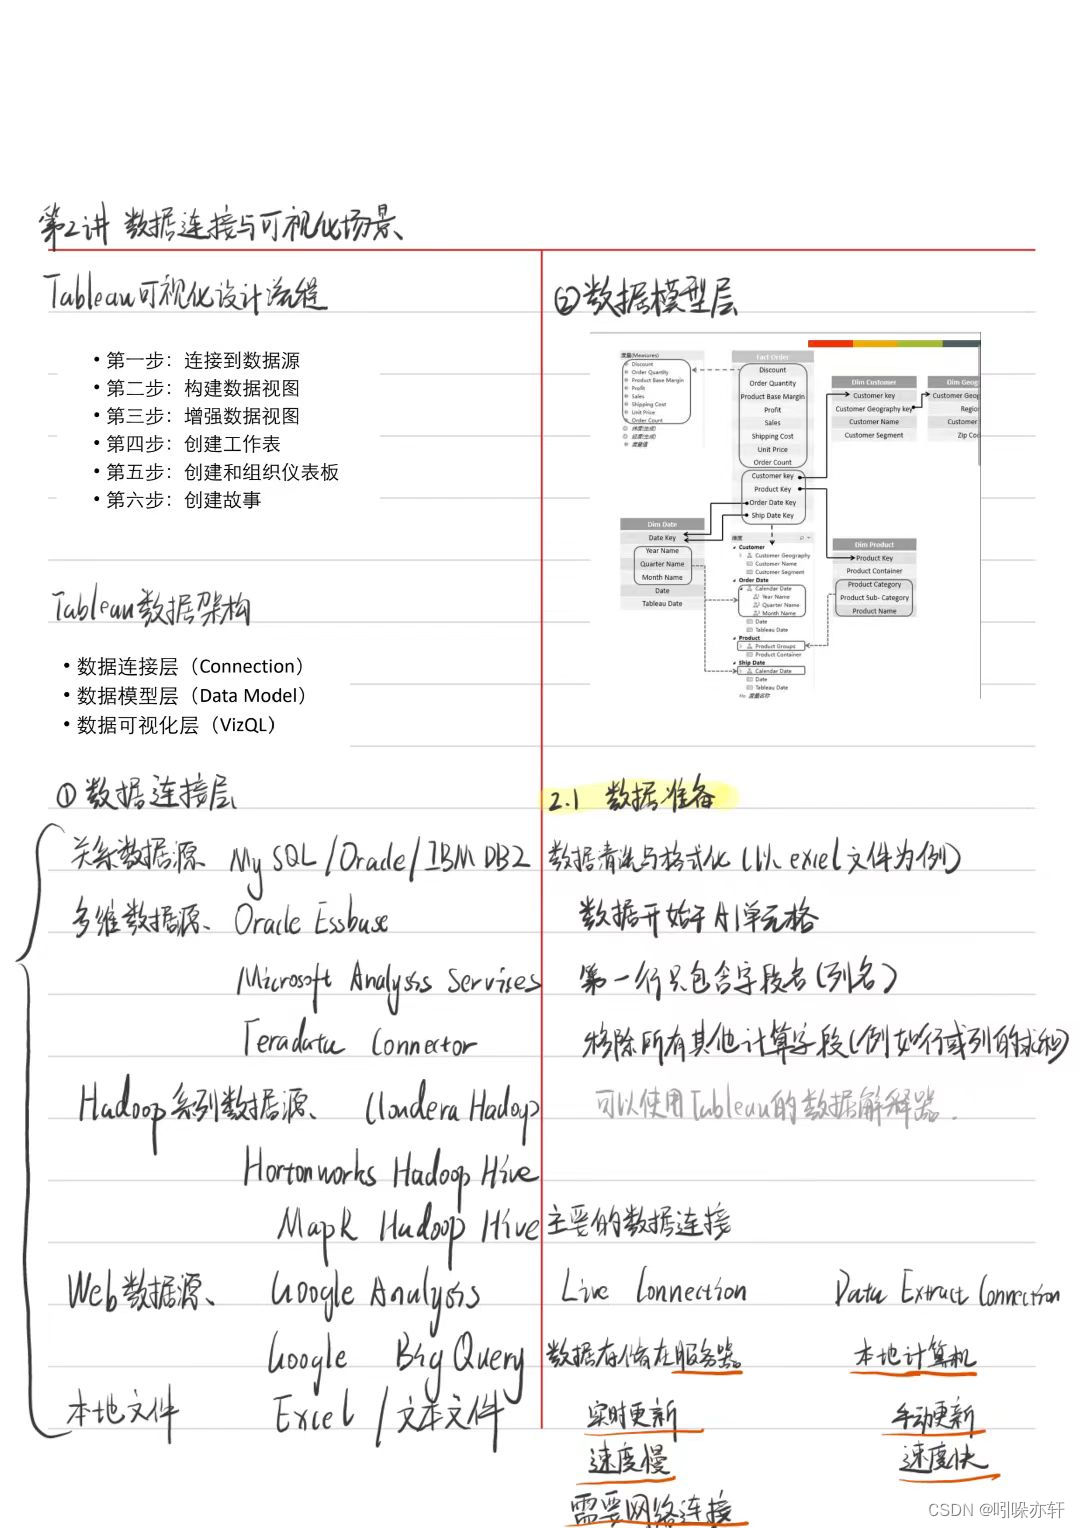 第2讲 数据连接与可视化场景
Tableau可视化设计流程
• 第一步：连接到数据源
• 第二步：构建数据视图
• 第三步：增强数据视图
• 第四步：创建工作表
• 第五步：创建和组织仪表板
• 第六步：创建故事
Tableau数据架构
• 数据连接层（Connection）
• 数据模型层（Data Model）
• 数据可视化层（VizQL）
①数据连接层
关系数据源、MySQL/Oracle/IBM DB2
多维数据源、Oracle Essbase
Microsoft Analysis Services
Teradata Connector
Hadoop系列数据源、Cloudera Hadoop
Hortonworks Hadoop Hive
MapR Hadoop Hive
Web数据源、Google Analysis
Google Big Query
本地文件 Excel/文本文件
②数据模型层
度量(Measures)
Discount
Order Quantity
Product Base Margin
Profit
Sales
Shipping Cost
Unit Price
Order Count
纬度(生成)
经度(生成)
度量值
Fact Order
Discount
Order Quantity
Product Base Margin
Profit
Sales
Shipping Cost
Unit Price
Order Count
Customer key
Product Key
Order Date Key
Ship Date Key
Dim Customer
Customer key
Customer Geography key
Customer Name
Customer Segment
Dim Geog
Customer Geog
Regio
Customer
Zip Co
Dim Date
Date Key
Year Name
Quarter Name
Month Name
Date
Tableau Date
维度
Customer
Customer Geography
Customer Name
Customer Segment
Order Date
Calendar Date
Year Name
Quarter Name
Month Name
Date
Tableau Date
Product
Product Groups
Product Container
Ship Date
Calendar Date
Date
Tableau Date
度量名称
Dim Product
Product Key
Product Container
Product Category
Product Sub- Category
Product Name
2.1 数据准备
数据清洗与格式化（以excel文件为例）
数据开始于A1单元格
第一行只包含字段名（列名）
移除所有其他计算字段（例如行或列的求和）
可以使用Tableau的数据解释器.
主要的数据连接
Live Connection Data Extract Connection
数据存储在服务器 本地计算机
实时更新 手动更新
速度慢 速度快
需要网络连接
CSDN @吲哚亦轩